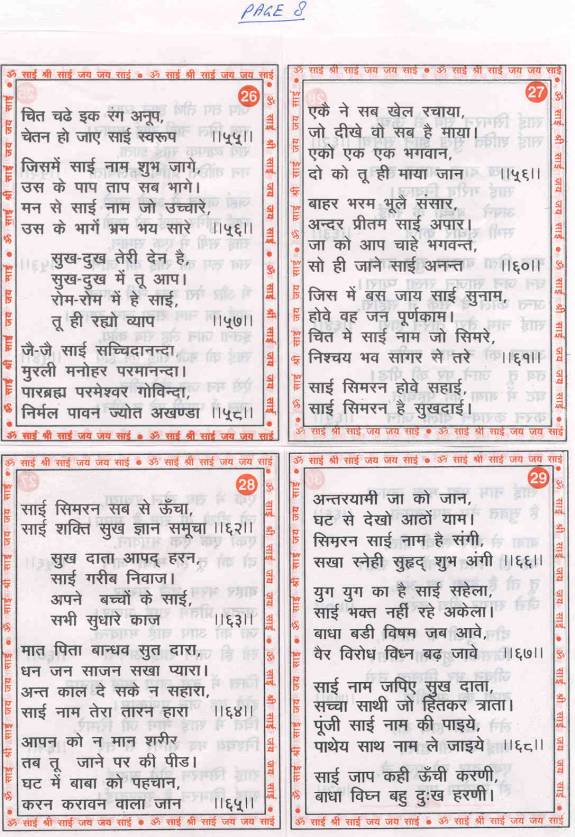 PAGE 8
ॐ साई श्री साई जय जय साई • ॐ साई श्री साई जय जय साई
26
चित चढे इक रंग अनूप,
चेतन हो जाए साई स्वरूप ।।५५।।
जिसमें साई नाम शुभ जागे,
उस के पाप ताप सब भागे।
मन से साई नाम जो उच्चारे,
उस के भागें भ्रम भय सारे ।।५६।।
सुख-दुख तेरी देन है,
सुख-दुख में तू आप।
रोम-रोम में हे साई,
तू ही रह्यो व्याप ।।५७।।
जै-जै साई सच्चिदानन्दा,
मुरली मनोहर परमानन्दा।
पारब्रह्म परमेश्वर गोविन्दा,
निर्मल पावन ज्योत अखण्डा ।।५८।।
27
एकै ने सब खेल रचाया,
जो दीखे वो सब है माया।
एको एक एक भगवान,
दो को तू ही माया जान ।।५६।।
बाहर भरम भूले संसार,
अन्दर प्रीतम साई अपार।
जा को आप चाहे भगवन्त,
सो ही जाने साई अनन्त ।।६०।।
जिस में बस जाय साई सुनाम,
होवे वह जन पूर्णकाम।
चित में साई नाम जो सिमरे,
निश्चय भव सागर से तरे ।।६१।।
साई सिमरन होवे सहाई,
साई सिमरन है सुखदाई।
28
साई सिमरन सब से ऊँचा,
साई शक्ति सुख ज्ञान समूचा ।।६२।।
सुख दाता आपद् हरन,
साई गरीब निवाज।
अपने बच्चों के साई,
सभी सुधारे काज ।।६३।।
मात पिता बान्धव सुत दारा,
धन जन साजन सखा प्यारा।
अन्त काल दे सके न सहारा,
साई नाम तेरा तारन हारा ।।६४।।
आपन को न मान शरीर
तब तू जाने पर की पीड।
घट में बाबा को पहचान,
करन करावन वाला जान ।।६५।।
29
अन्तरयामी जा को जान,
घट से देखो आठों याम।
सिमरन साई नाम है संगी,
सखा स्नेही सुहृद् शुभ अंगी ।।६६।।
युग युग का है साई सहेला,
साई भक्त नहीं रहे अकेला।
बाधा बडी विषम जब आवे,
वैर विरोध विध्न बढ़ जावे ।।६७।।
साई नाम जपिए सुख दाता,
सच्चा साथी जो हितकर त्राता।
पूंजी साई नाम की पाइये,
पाथेय साथ नाम ले जाइये ।।६८।।
साई जाप कही ऊँची करणी,
बाधा विध्न बहु दुःख हरणी।